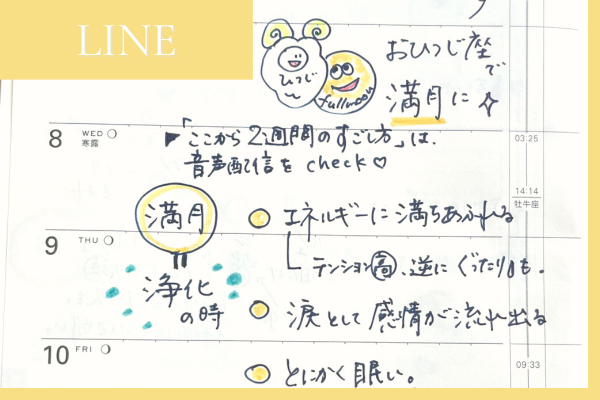 LINE
おひつじ座で
満月に
ひつじ
fullmoon
8 WED 寒露
「ここから2週間のすごし方」は、
音声配信を check♡
03:25
14:14
牡牛座
満月
エネルギーに満ちあふれる
9 THU
テンション高、逆にぐったりも。
浄化
の時
涙として感情が流れ出る
10 FRI
09:33
とにかく眠い。